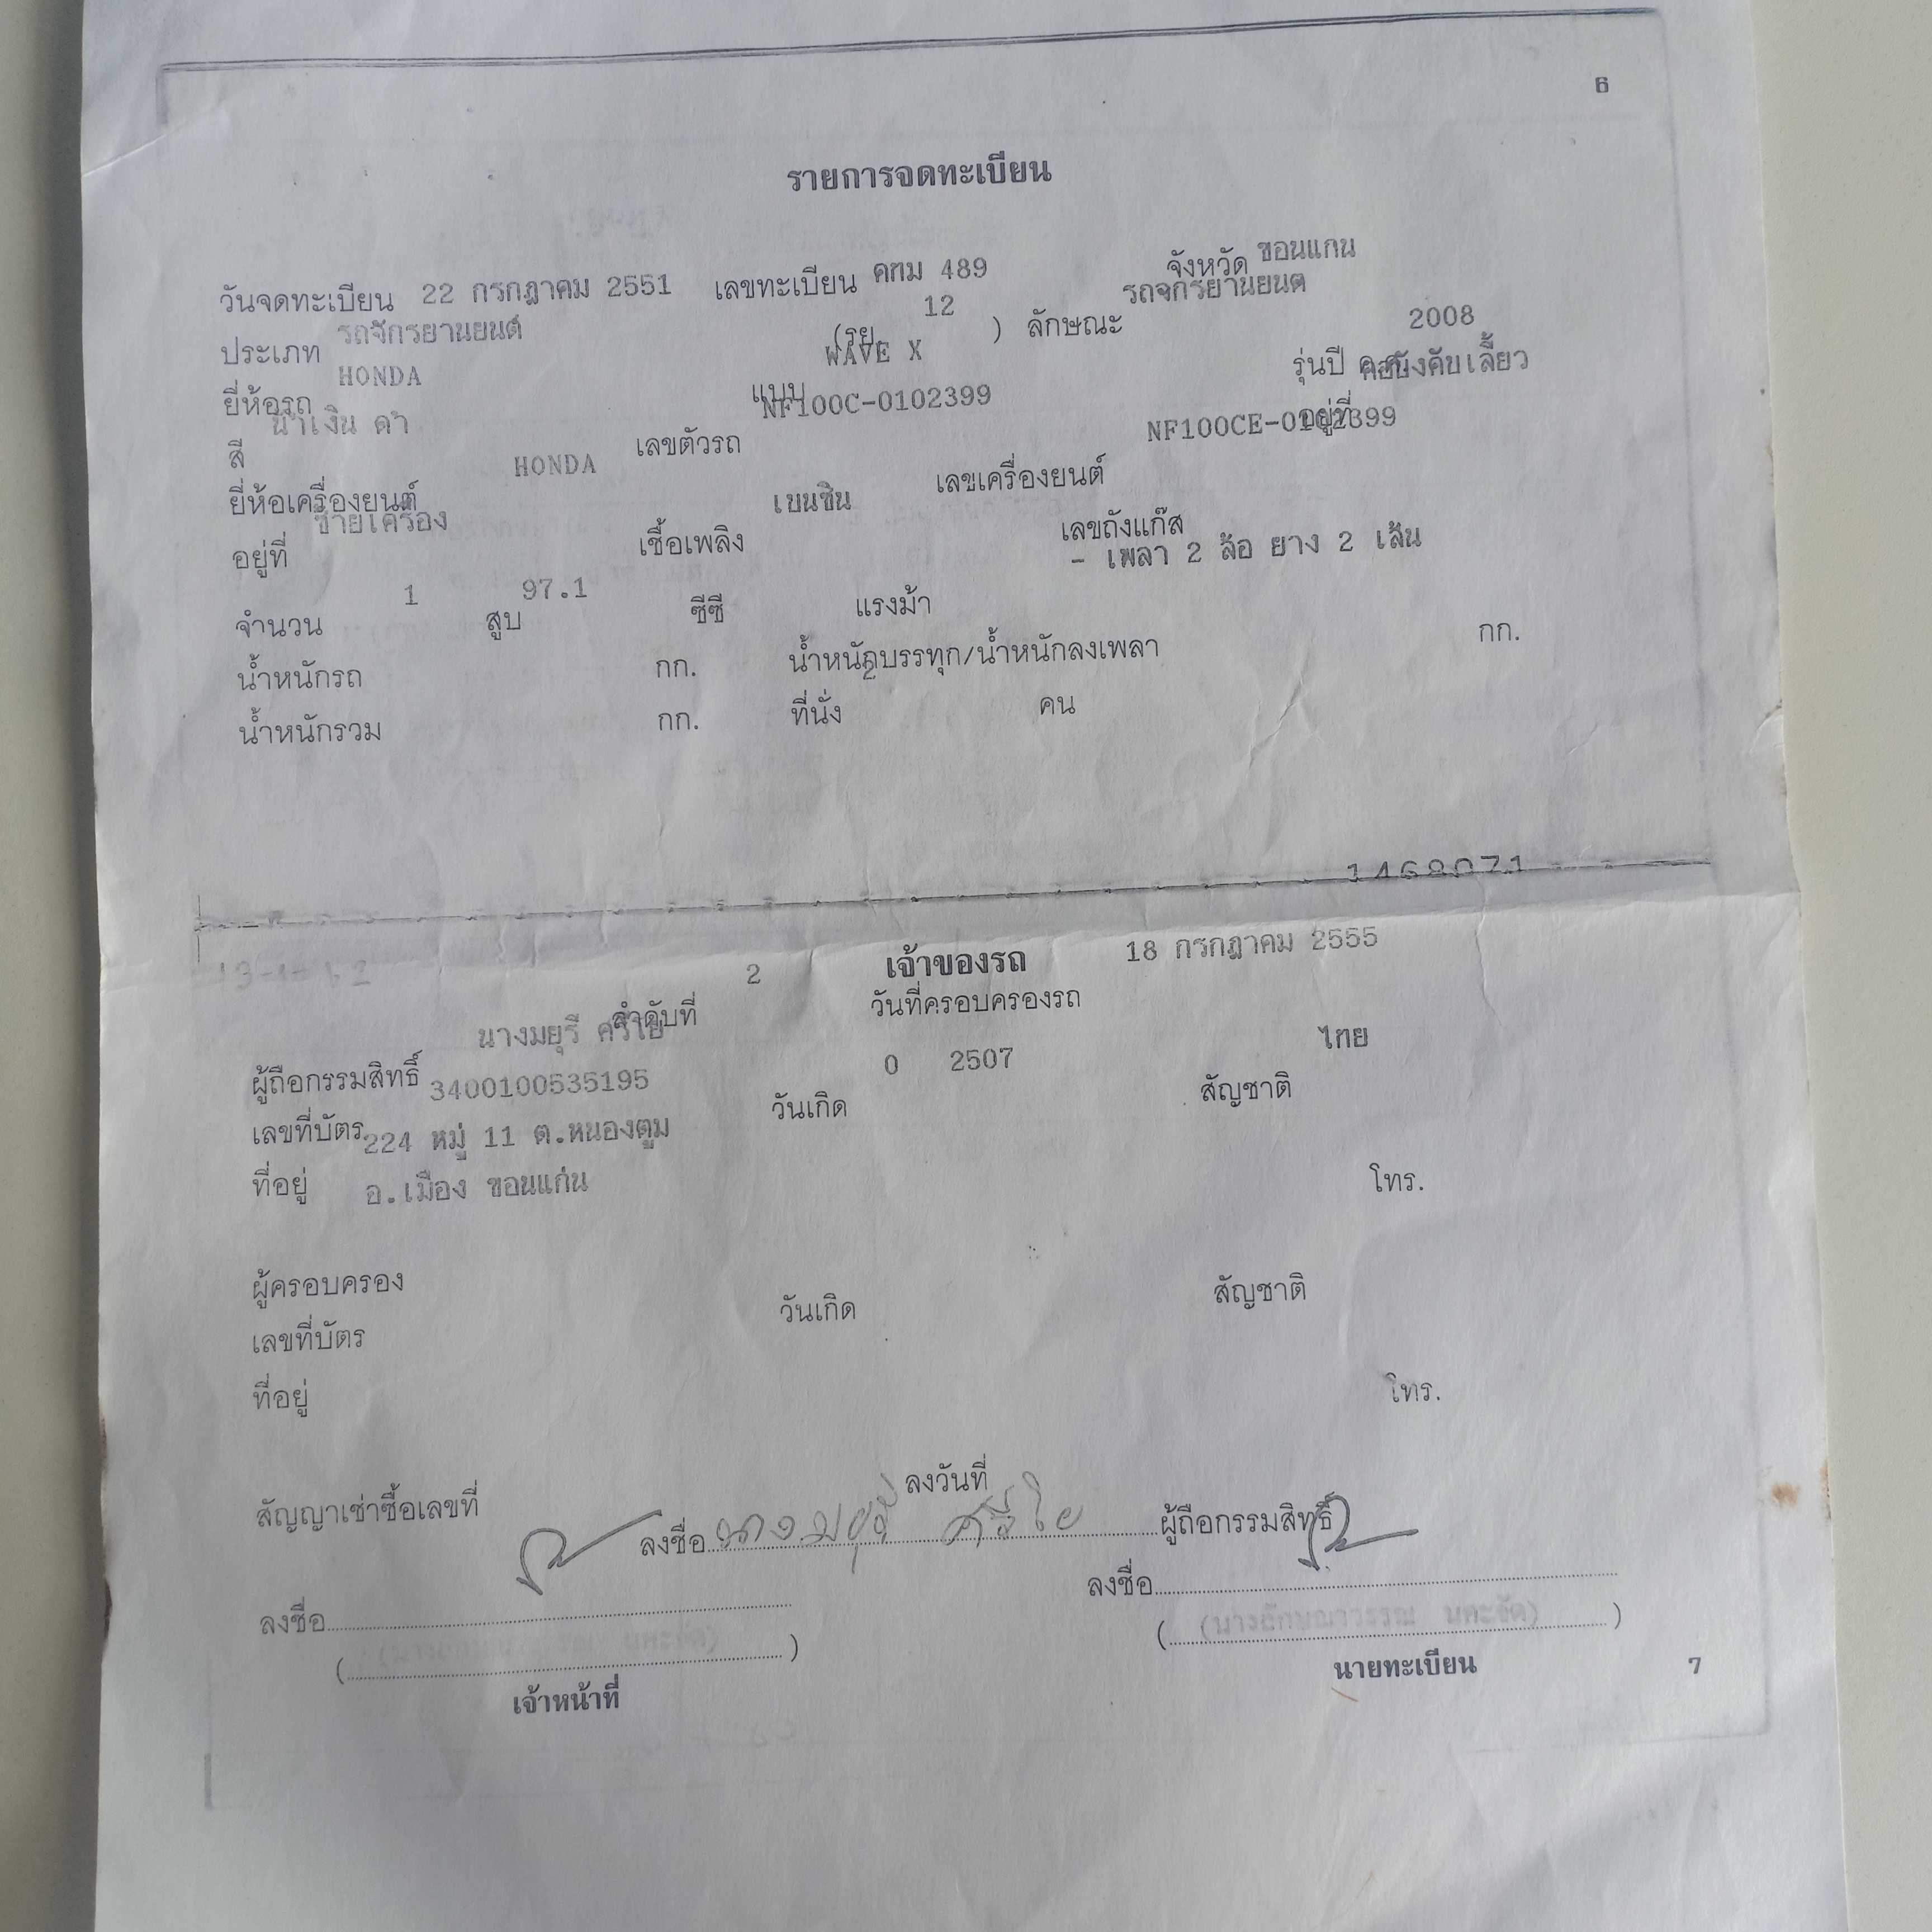 6
รายการจดทะเบียน
วันจดทะเบียน 22 กรกฎาคม 2551 เลขทะเบียน คทม 489 จังหวัด ขอนแกน
ประเภท รถจักรยานยนต์ (รย. 12 ) ลักษณะ รถจกรยานยนต
ยี่ห้อรถ HONDA แบบ WAVE X รุ่นปี ค.ศ. 2008
สี นำเงิน ดำ เลขตัวรถ NF100C-0102399 อยู่ที่ คอบังคับเลี้ยว
ยี่ห้อเครื่องยนต์ HONDA เลขเครื่องยนต์ NF100CE-0102399
อยู่ที่ ซ้ายเครื่อง เชื้อเพลิง เบนซิน เลขถังแก๊ส
จำนวน 1 สูบ 97.1 ซีซี แรงม้า - เพลา 2 ล้อ ยาง 2 เส้น
น้ำหนักรถ กก. น้ำหนักบรรทุก/น้ำหนักลงเพลา กก.
น้ำหนักรวม กก. ที่นั่ง 2 คน
1468071
เจ้าของรถ
ลำดับที่ 2 วันที่ครอบครองรถ 18 กรกฎาคม 2555
ผู้ถือกรรมสิทธิ์ นางมยุรี ศรีไย
เลขที่บัตร 3400100535195 วันเกิด 0 2507 สัญชาติ ไทย
ที่อยู่ 224 หมู่ 11 ต.หนองตูม
อ.เมือง ขอนแก่น โทร.
ผู้ครอบครอง
เลขที่บัตร วันเกิด สัญชาติ
ที่อยู่ โทร.
สัญญาเช่าซื้อเลขที่ ลงวันที่
ลงชื่อ นางมยุรี ศรีไย ผู้ถือกรรมสิทธิ์
ลงชื่อ ลงชื่อ
( ) ( )
เจ้าหน้าที่ นายทะเบียน
7